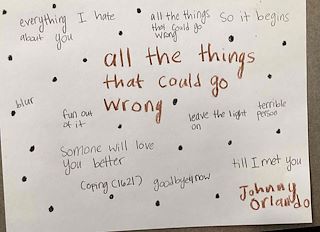 everything I hate
about you
all the things
that could go
wrong
So it begins
all the things
that could go
wrong
blur
fun out
of it
leave the light
on
terrible
person
Somone will love
you better
till I met you
Coping (1621)
goodbyes4now
Johnny
Orlando